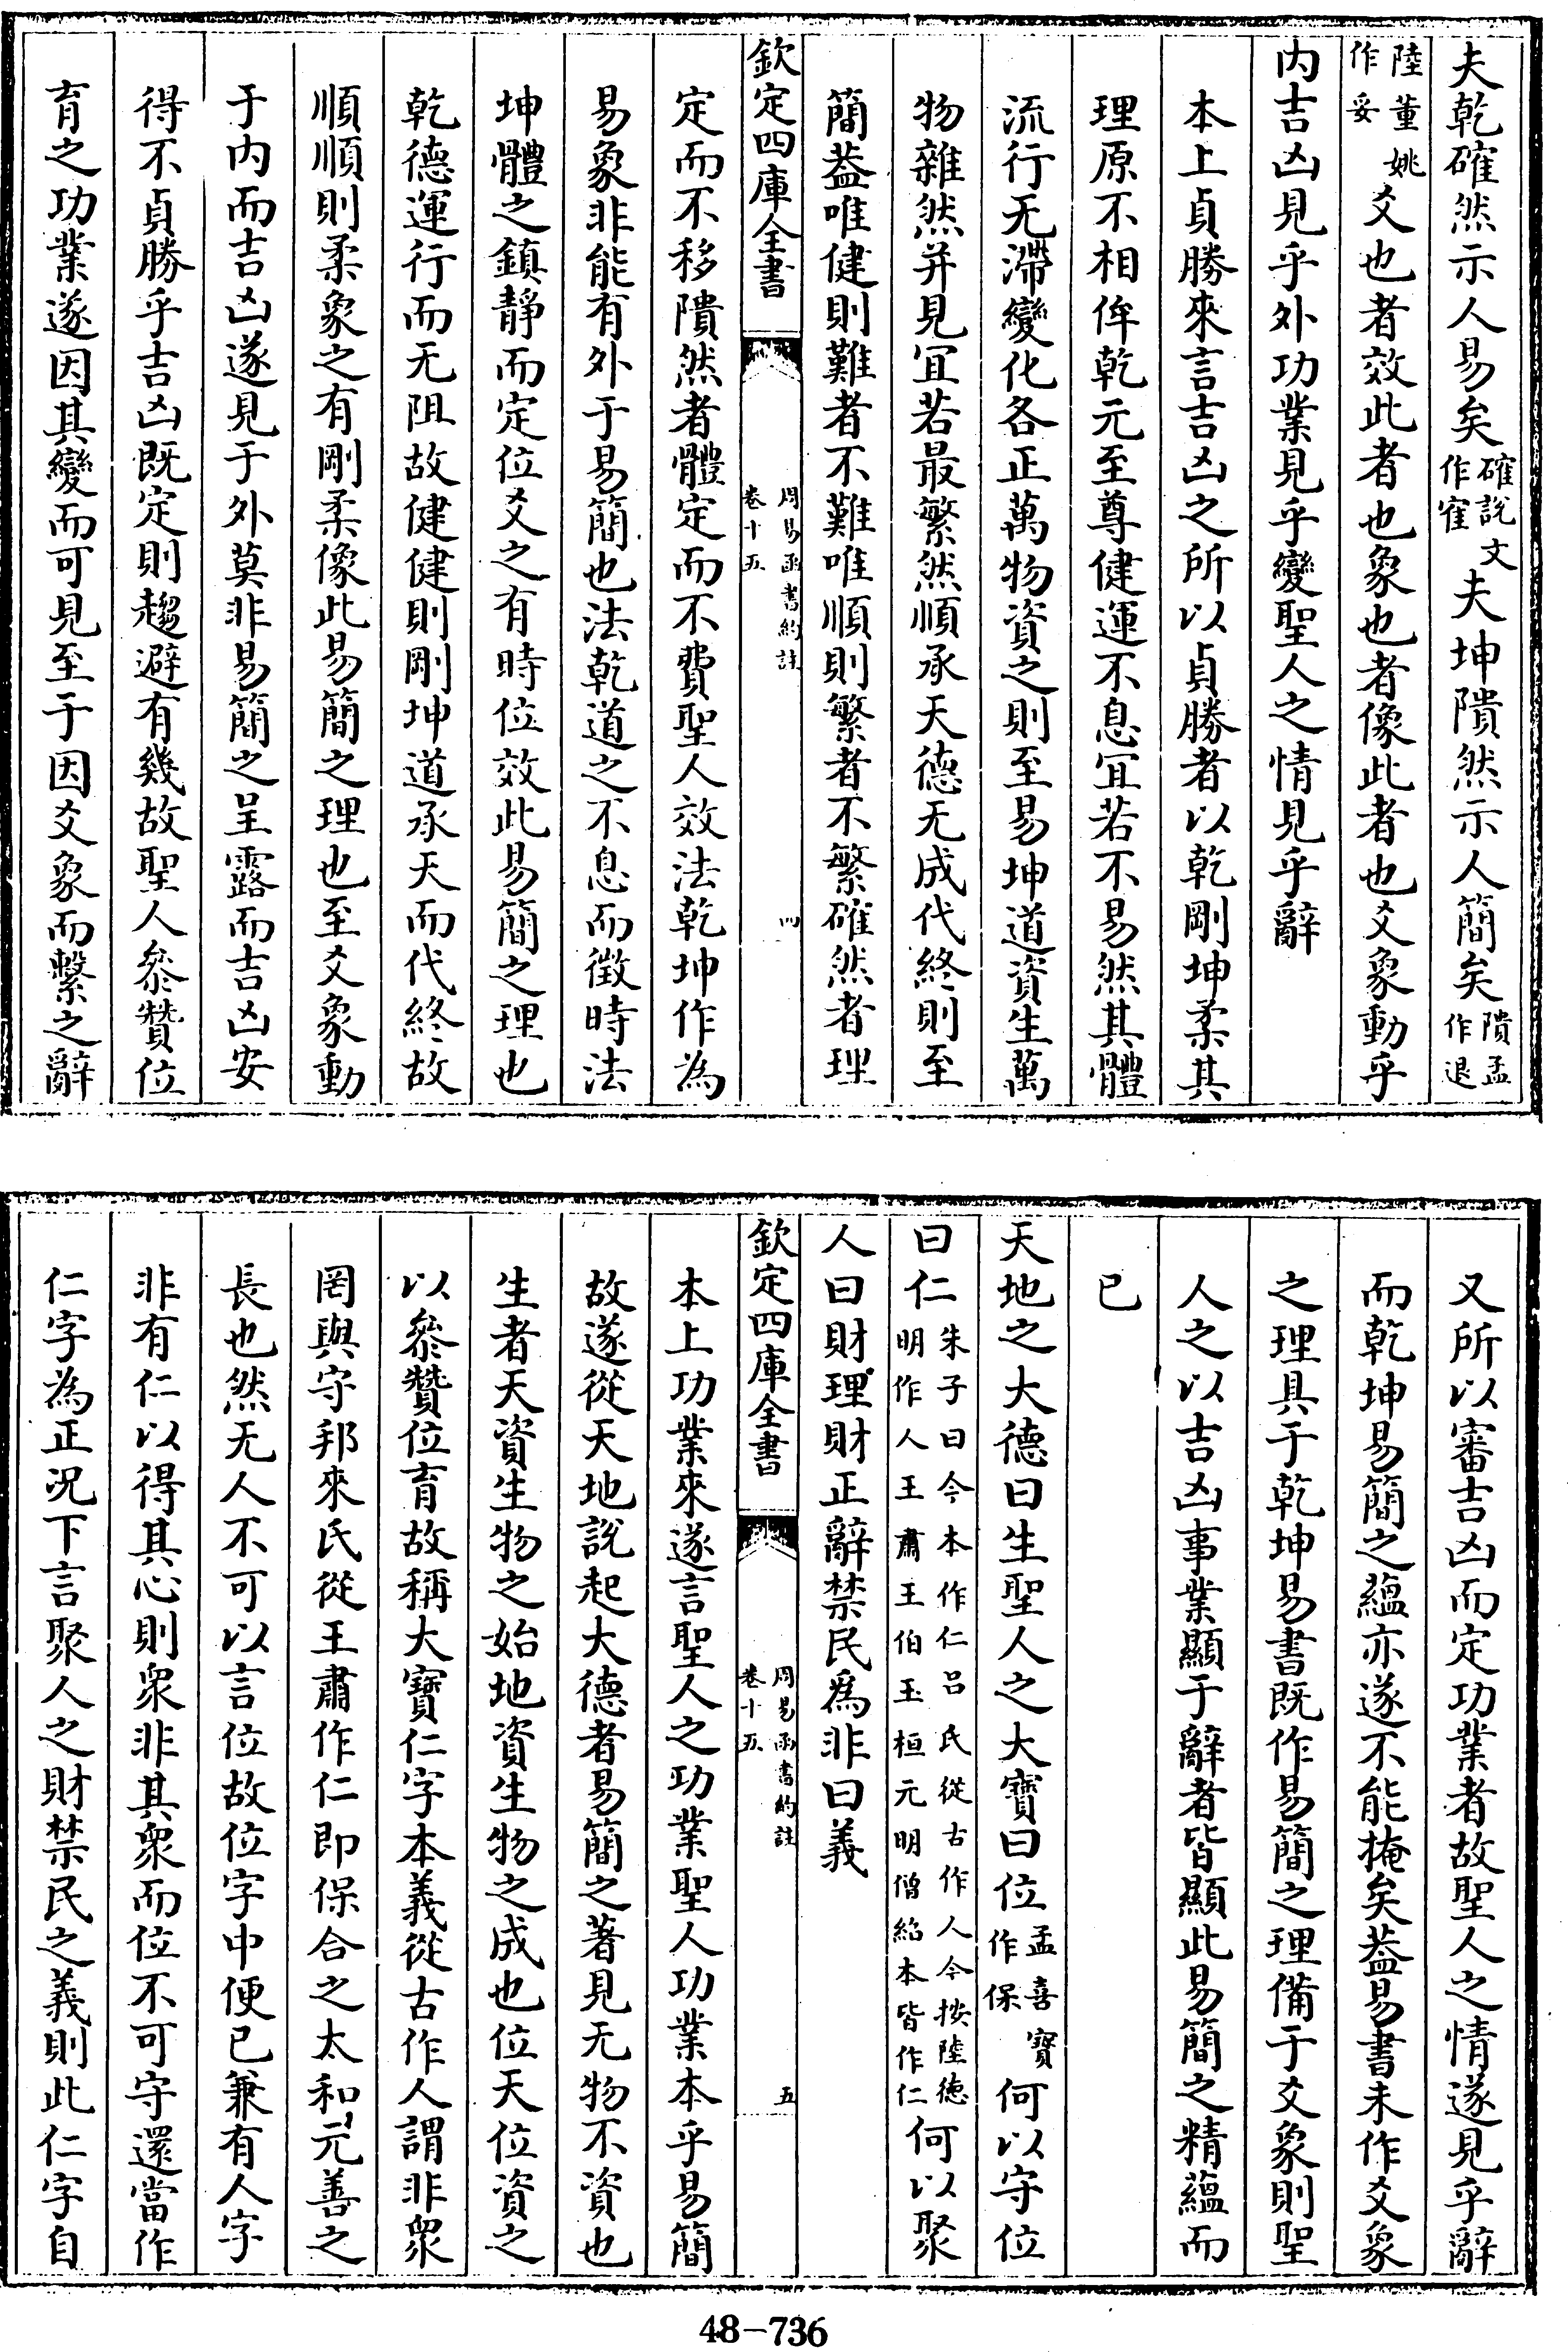 夫乾確然示人易矣確説文作寉夫坤隤然示人簡矣隤孟作退
陸董姚作妥爻也者效此者也象也者像此者也爻象動乎
内吉凶見乎外功業見乎變聖人之情見乎辭
本上貞勝來言吉凶之所以貞勝者以乾剛坤柔其
理原不相侔乾元至尊健運不息宜若不易然其體
流行无滯變化各正萬物資之則至易坤道資生萬
物雜然并見宜若最繁然順承天德无成代終則至
簡葢唯健則難者不難唯順則繁者不繁確然者理
欽定四庫全書
周易函書約註
卷十五
四
定而不移隤然者體定而不費聖人效法乾坤作為
易象非能有外于易簡也法乾道之不息而徴時法
坤體之鎮靜而定位爻之有時位效此易簡之理也
乾德運行而无阻故健健則剛坤道承天而代終故
順順則柔象之有剛柔像此易簡之理也至爻象動
于内而吉凶遂見于外莫非易簡之呈露而吉凶安
得不貞勝乎吉凶既定則趨避有幾故聖人叅贊位
育之功業遂因其變而可見至于因爻象而繫之辭
又所以審吉凶而定功業者故聖人之情遂見乎辭
而乾坤易簡之蘊亦遂不能掩矣葢易書未作爻象
之理具于乾坤易書既作易簡之理備于爻象則聖
人之以吉凶事業顯于辭者皆顯此易簡之精蘊而
已
天地之大德曰生聖人之大寶曰位孟喜寶作保何以守位
曰仁朱子曰今本作仁吕氏從古作人今按陸德明作人王肅王伯玉桓元明僧紹本皆作仁何以聚
人曰財理財正辭禁民為非曰義
欽定四庫全書
周易函書約註
卷十五
五
本上功業來遂言聖人之功業聖人功業本乎易簡
故遂從天地説起大德者易簡之著見无物不資也
生者天資生物之始地資生物之成也位天位資之
以叅贊位育故稱大寶仁字本義從古作人謂非衆
罔與守邦來氏從王肅作仁即保合之太和元善之
長也然无人不可以言位故位字中便已兼有人字
非有仁以得其心則衆非其衆而位不可守還當作
仁字為正况下言聚人之財禁民之義則此仁字自
48-736